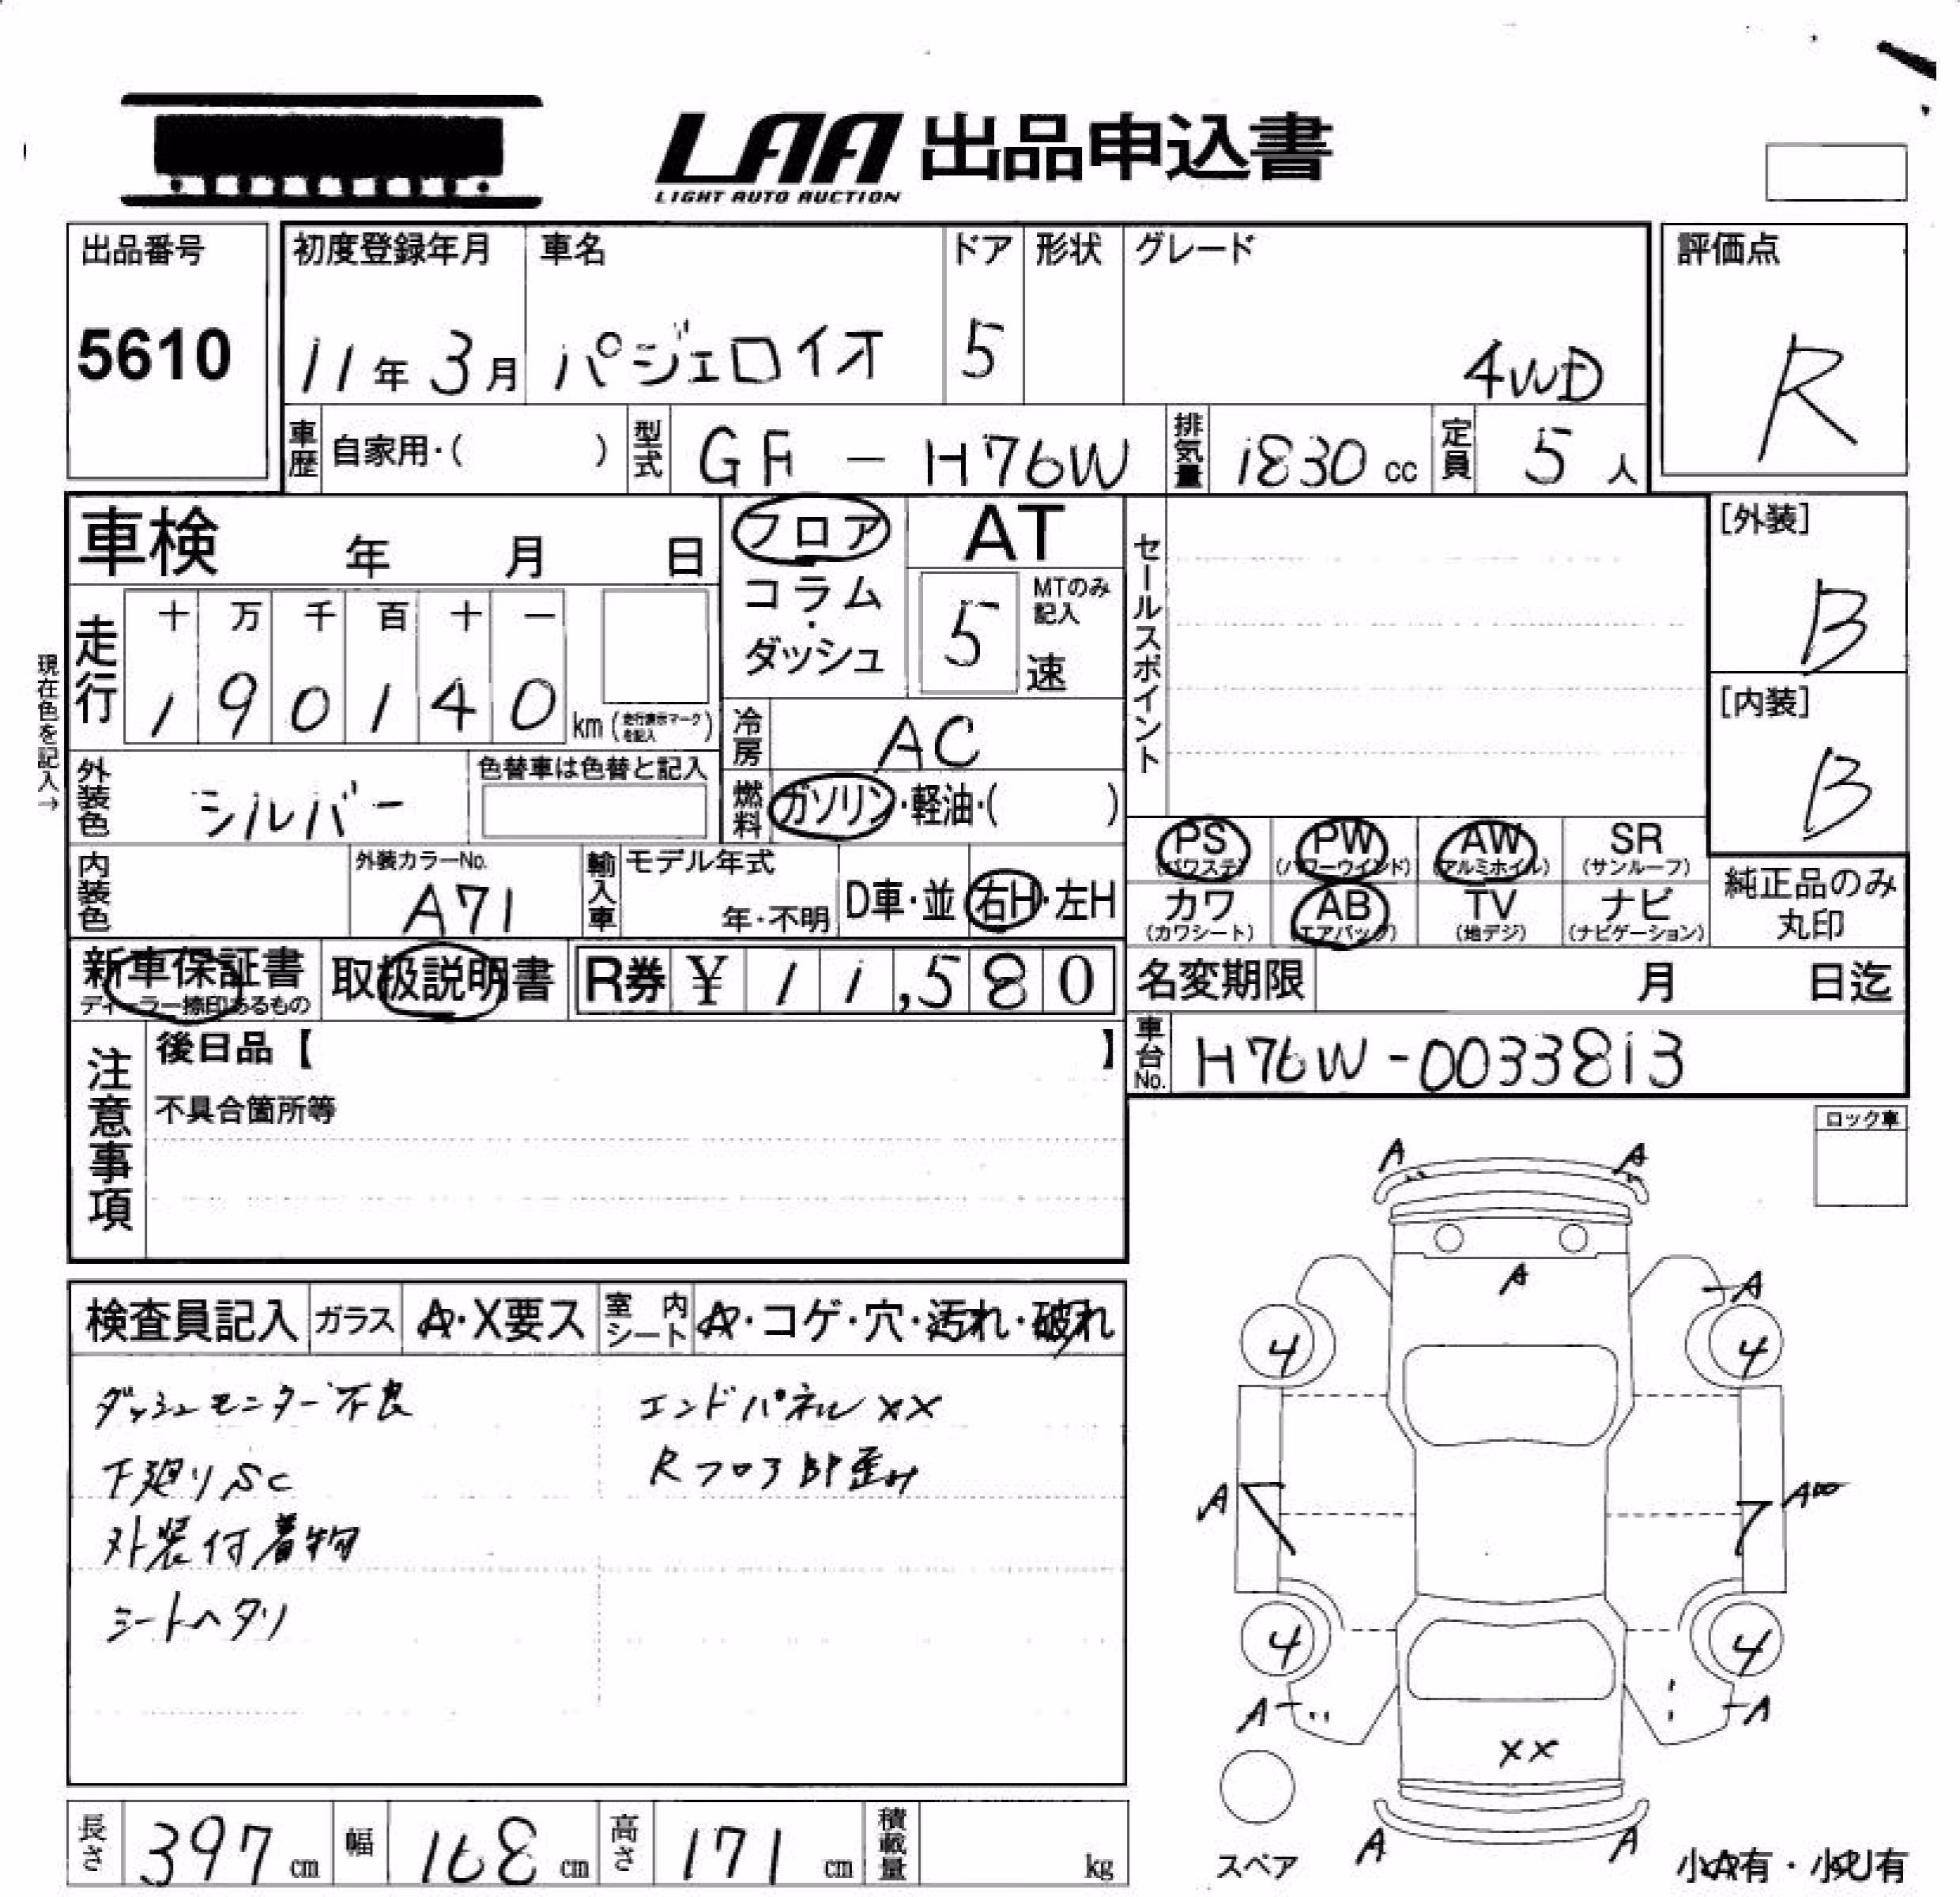 LAA 出品申込書
LIGHT AUTO AUCTION
出品番号 初度登録年月 車名 ドア 形状 グレード 評価点
5610 11年 3月 パジェロイオ 5 4WD R
車歴 自家用・( ) 型式 GF - H76W 排気量 1830 cc 定員 5 人
車検 年 月 日 フロア AT セールスポイント [外装]
コラム・ダッシュ 5 速 MTのみ記入 B
現在色を記入→
走行 十 万 千 百 十 一
1 9 0 1 4 0 km (走行表示マークを記入)
[内装]
B
冷房 AC
外装色 シルバー 色替車は色替と記入 燃料 ガソリン・軽油・( )
PS (パワステ) PW (パワーウインド) AW (アルミホイル) SR (サンルーフ)
内装色 外装カラーNo. A71 輸入車 モデル年式 年・不明 D車・並 右H・左H
カワ (カワシート) AB (エアバッグ) TV (地デジ) ナビ (ナビゲーション)
純正品のみ
丸印
新車保証書 取扱説明書 R券 ¥ 11,580 名変期限 月 日迄
ディーラー捺印あるもの
車台No. H76W-0033813
注意事項 後日品【 】
不具合箇所等
ロック車
検査員記入 ガラス A・X要ス 室内シート A・コゲ・穴・汚れ・破れ
ダッシュモニター不良 エンドパネルXX
下廻りSC Rフロア部歪み
外装付着物
シートヘタリ
A A
A
A
4 4
A A
4 4
A A
XX
A A
スペア
小A有・小U有
長さ 397 cm 幅 168 cm 高さ 171 cm 積載量 kg